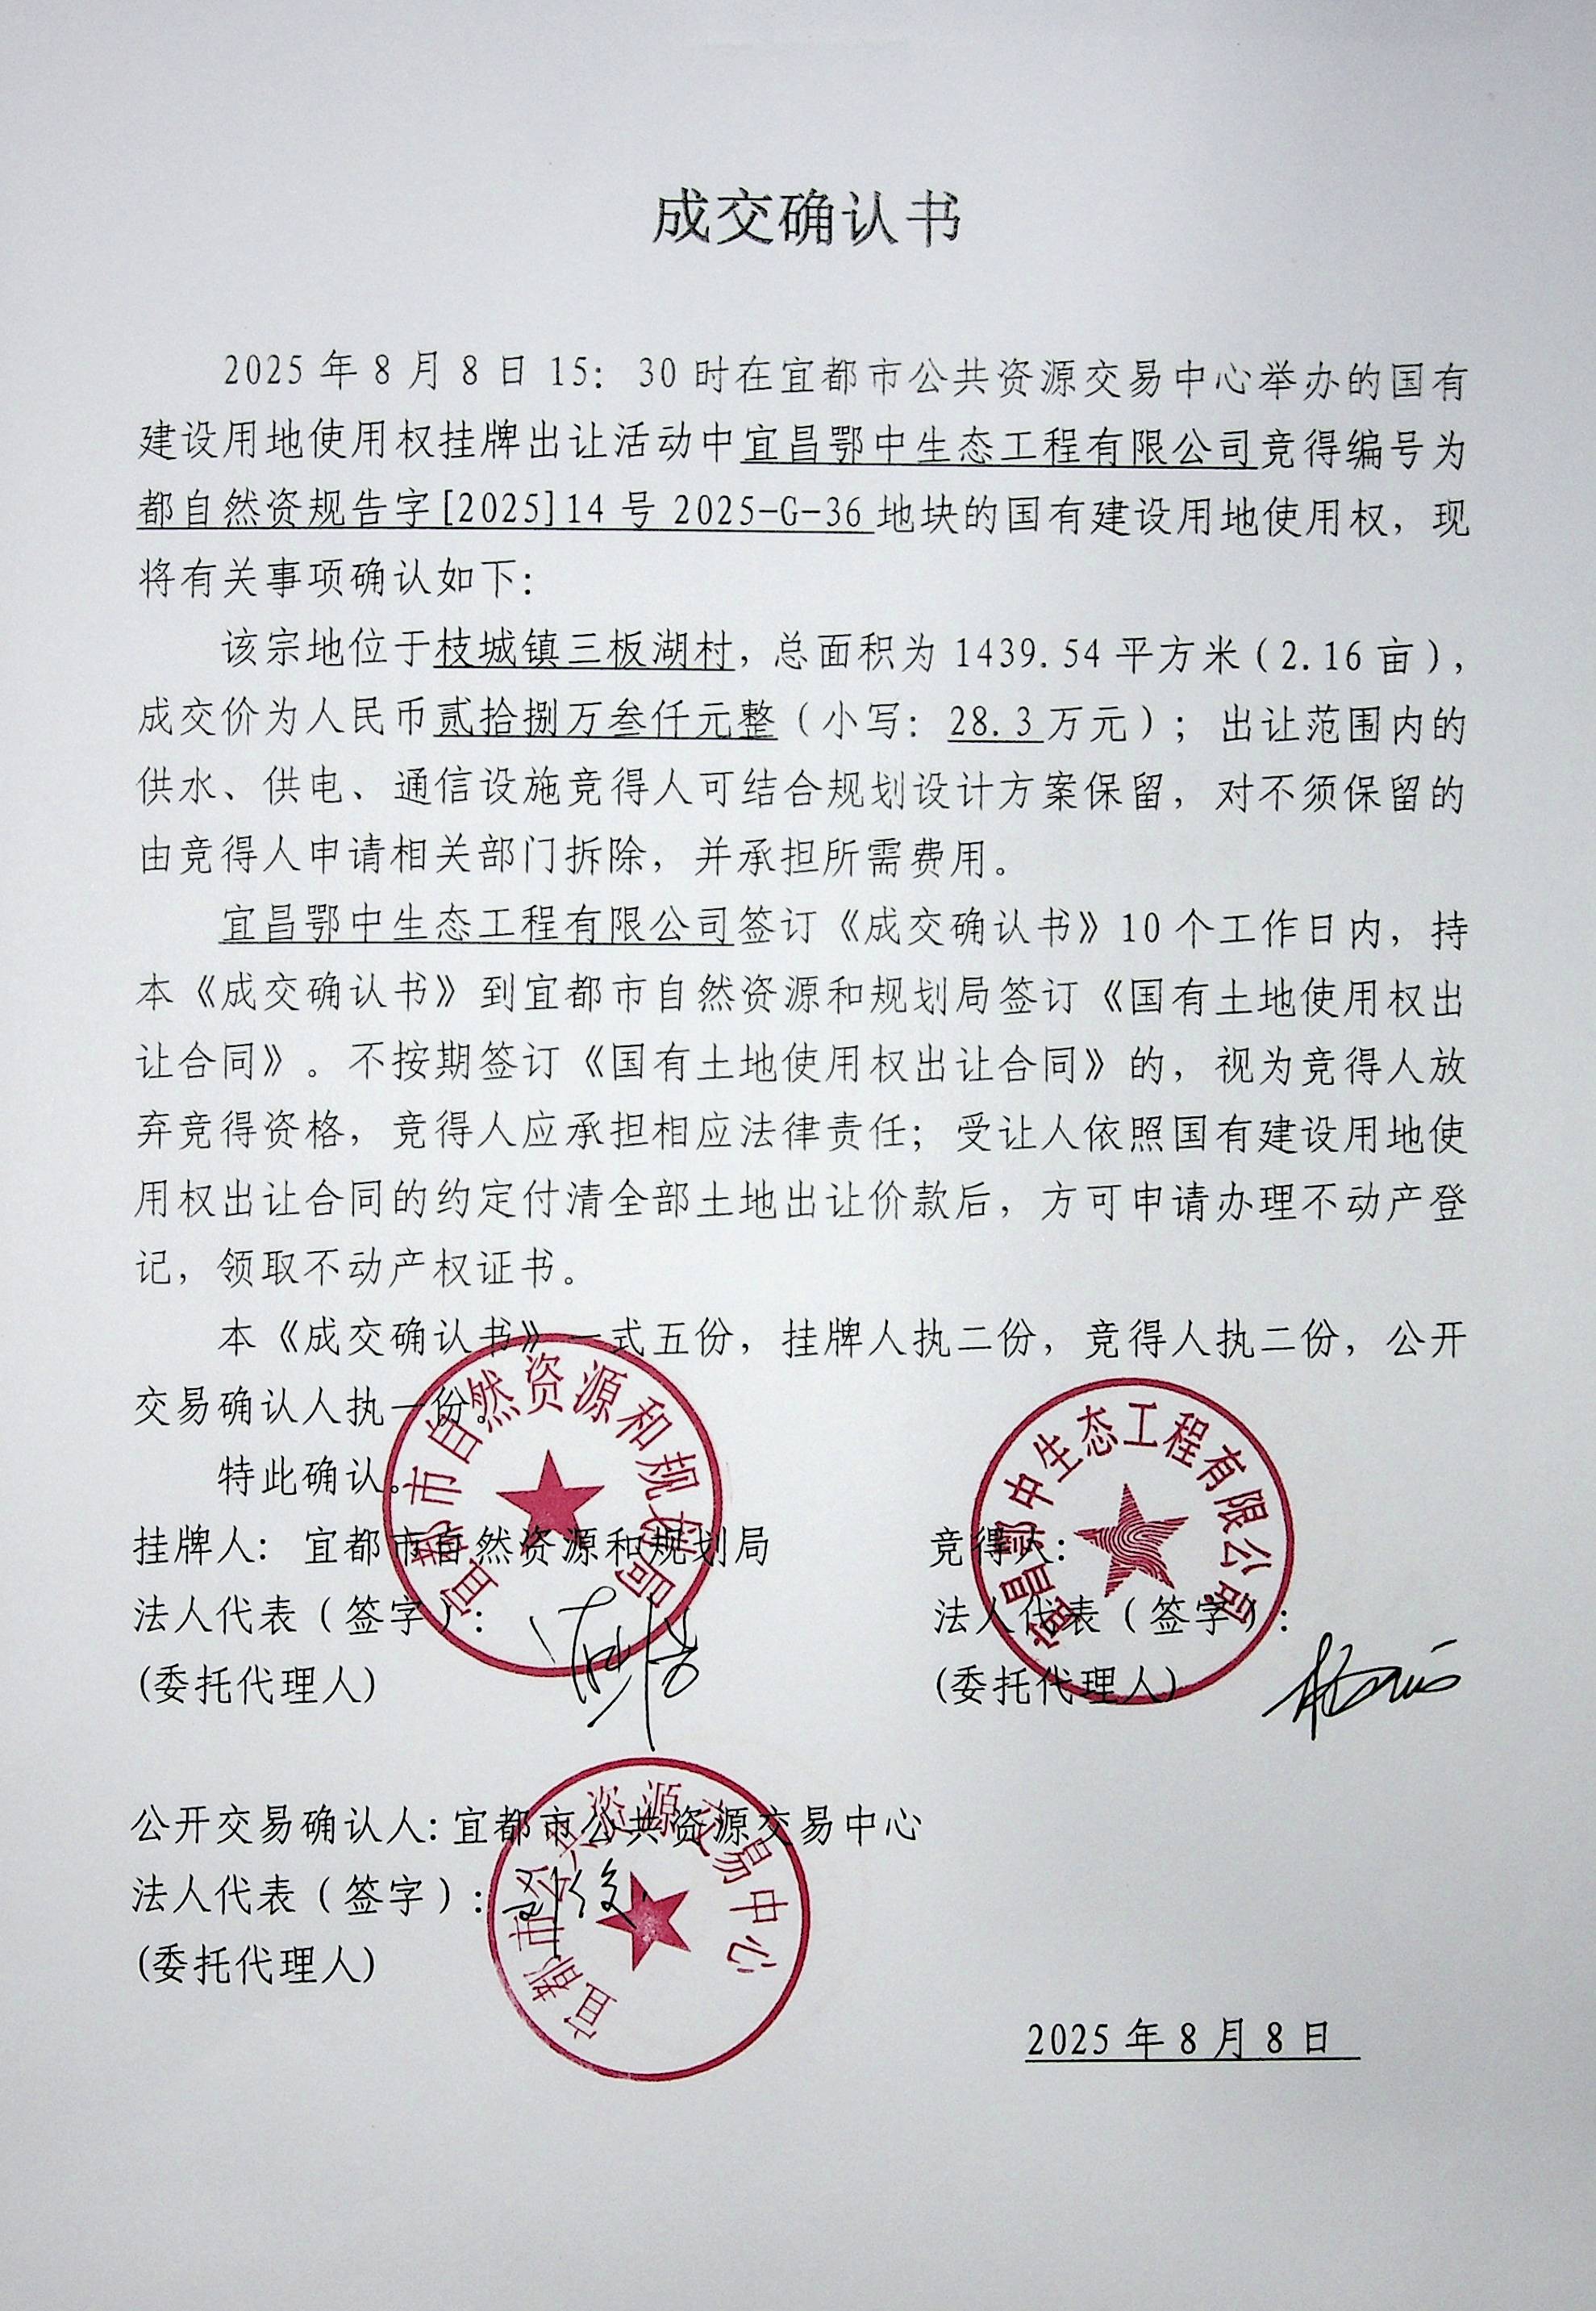 成交确认书
2025年8月8日15：30时在宜都市公共资源交易中心举办的国有
建设用地使用权挂牌出让活动中宜昌鄂中生态工程有限公司竞得编号为
都自然资规告字[2025]14号2025-G-36地块的国有建设用地使用权，现
将有关事项确认如下：
该宗地位于枝城镇三板湖村，总面积为1439.54平方米（2.16亩），
成交价为人民币贰拾捌万叁仟元整（小写：28.3万元）；出让范围内的
供水、供电、通信设施竞得人可结合规划设计方案保留，对不须保留的
由竞得人申请相关部门拆除，并承担所需费用。
宜昌鄂中生态工程有限公司签订《成交确认书》10个工作日内，持
本《成交确认书》到宜都市自然资源和规划局签订《国有土地使用权出
让合同》。不按期签订《国有土地使用权出让合同》的，视为竞得人放
弃竞得资格，竞得人应承担相应法律责任；受让人依照国有建设用地使
用权出让合同的约定付清全部土地出让价款后，方可申请办理不动产登
记，领取不动产权证书。
本《成交确认书》一式五份，挂牌人执二份，竞得人执二份，公开
交易确认人执一份。
特此确认。
宜都市自然资源和规划局
宜昌鄂中生态工程有限公司
挂牌人：宜都市自然资源和规划局 竞得人：
法人代表（签字）： 法人代表（签字）：
(委托代理人) (委托代理人)
公开交易确认人：宜都市公共资源交易中心
法人代表（签字）：
(委托代理人)
宜都市公共资源交易中心
2025年8月8日